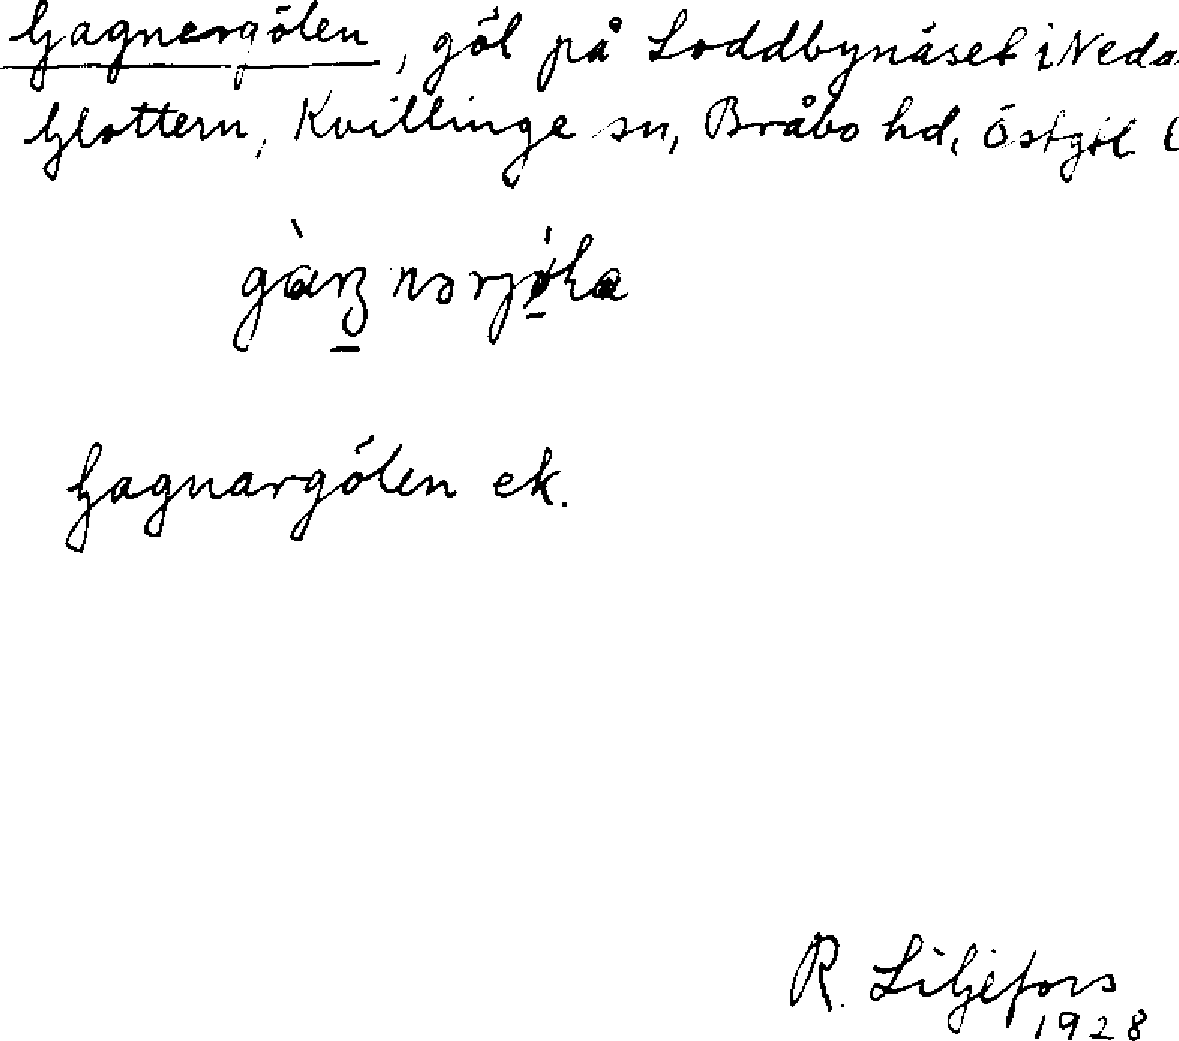 Gagnergölen, göl på Loddbynäset i Neda
Glottern, Kvillinge sn, Bråbo hd, Östgöt l
Gagnargölen ek.
R. Liljefors
1928